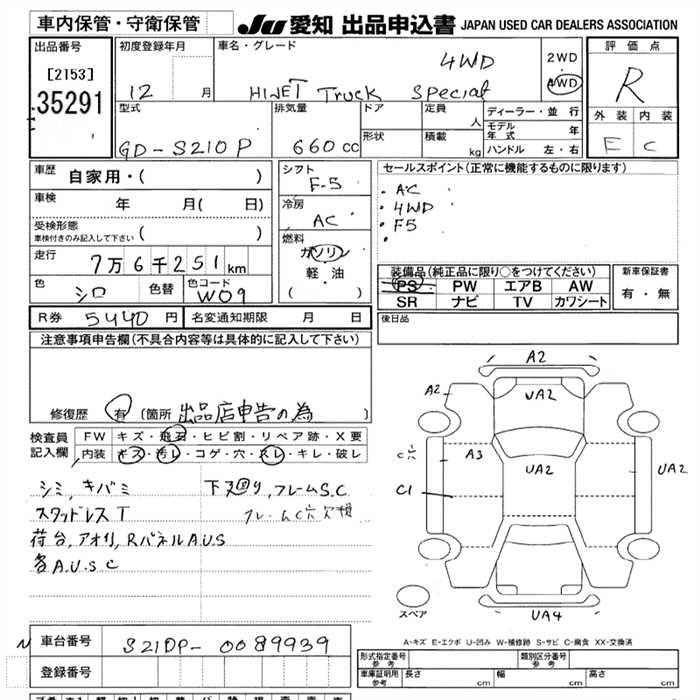 車内保管・守衛保管
JU 愛知 出品申込書 JAPAN USED CAR DEALERS ASSOCIATION
出品番号
[2153]
35291
初度登録年月
12 月
車名・グレード
4WD
HIJET Truck Special
2WD
4WD
評価点
R
外装 内装
E C
型式
GD-S210P
排気量
660cc
ドア
形状
定員
人
積載
kg
ディーラー・並行
モデル年式 年
ハンドル 左・右
車歴
自家用・( )
車検
年 月( 日)
受検形態
車検付きのみ記入して下さい ( )
走行
7万6千251km
色
シロ
色替
色コード
W09
シフト
F-5
冷房
AC
燃料
ガソリン
軽・油
( )
セールスポイント(正常に機能するものに限ります)
・AC
・4WD
・F5
・
装備品(純正品に限り○をつけてください)
PS PW エアB AW
SR ナビ TV カワシート
新車保証書
有・無
R券 5440 円 名変通知期限 月 日
後日品
注意事項申告欄(不具合内容等は具体的に記入して下さい)
修復歴 有 [箇所 出品店申告の為 ]
検査員記入欄
FW キズ・飛石・ヒビ割・リペア跡・X要
内装 キズ・汚レ・コゲ・穴・スレ・キレ・破レ
シミ,キバミ 下廻り,フレームS.C
スタッドレスT フレームC穴欠損
荷台,アオリ,RパネルA.U.S
各A.U.S C
A2
A2
UA2
C穴
A3
UA2
UA2
C1
スペア
UA4
A-キズ E-エクボ U-凹み W-補修跡 S-サビ C-腐食 XX-交換済
車台番号
S210P-0089939
登録番号
形式指定番号
参考
類別区分番号
参考
車庫証明用
参考
長さ cm 幅 cm 高さ cm